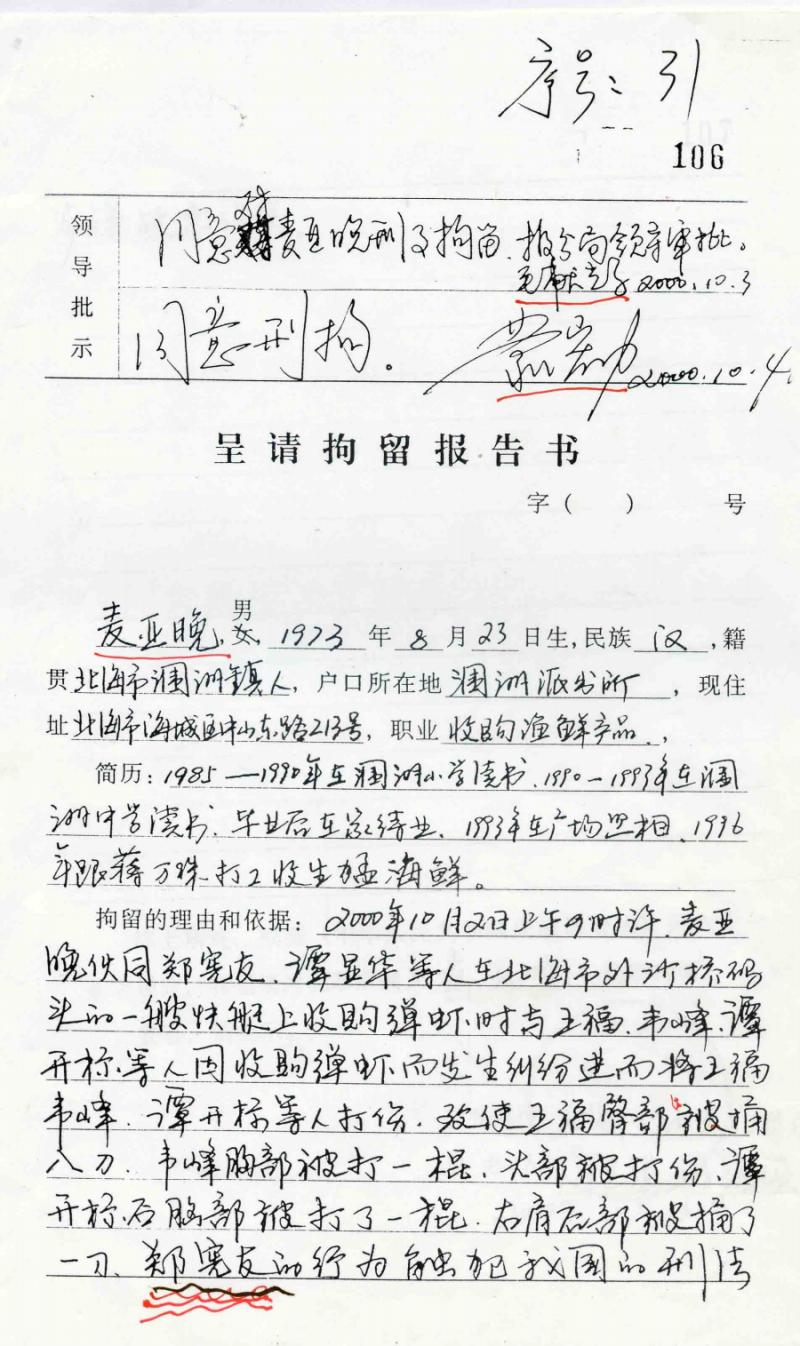 序号: 引
106
领导批示
同意对麦亚晚刑事拘留,报分局领导审批。
2000.10.3
同意刑拘。
2000.10.4
呈请拘留报告书
字( ) 号
麦亚晚,男女,1973年8月23日生,民族汉,籍
贯北海市涠洲镇人,户口所在地涠洲派出所,现住
址北海市海城区中山东路213号,职业收购渔鲜产品.,
简历:1985—1990年在涠洲小学读书.1990—1993年在涠
洲中学读书.毕业后在家待业、1993年在广场照相、1996
年跟蒋万珠打工收生猛海鲜。
拘留的理由和依据:2000年10月2日上午9时许.麦亚
晚伙同郑宪友、谭显华等人在北海市外沙桥码
头的一艘快艇上收购弹虾时与王福、韦峰、谭
开标等人因收购弹虾而发生纠纷进而将王福
韦峰、谭开标等人打伤.致使王福臀部被捅
八刀.韦峰胸部被打一棍、头部被打伤、谭
开标右胸部被打了一棍.右肩后部被捅了
一刀、郑宪友的行为触犯我国的刑法